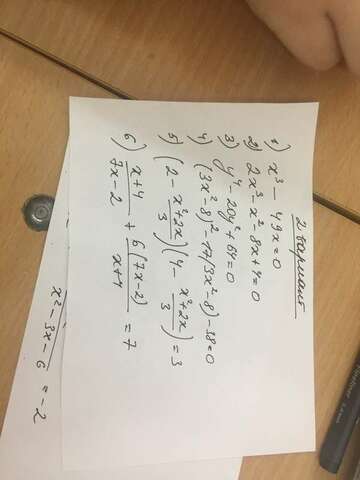 2 вариант
1) x³ - 49x=0
2) 2x³-x²-8x+4=0
3) y⁴-20y²+64=0
4) (3x²-8)²-17(3x²-8)-38=0
5) (2 - \frac{x²+2x}{3})(4 - \frac{x²+2x}{3})=3
6) \frac{x+4}{7x-2} + \frac{6(7x-2)}{x+4} = 7
x²-3x-6 = -2